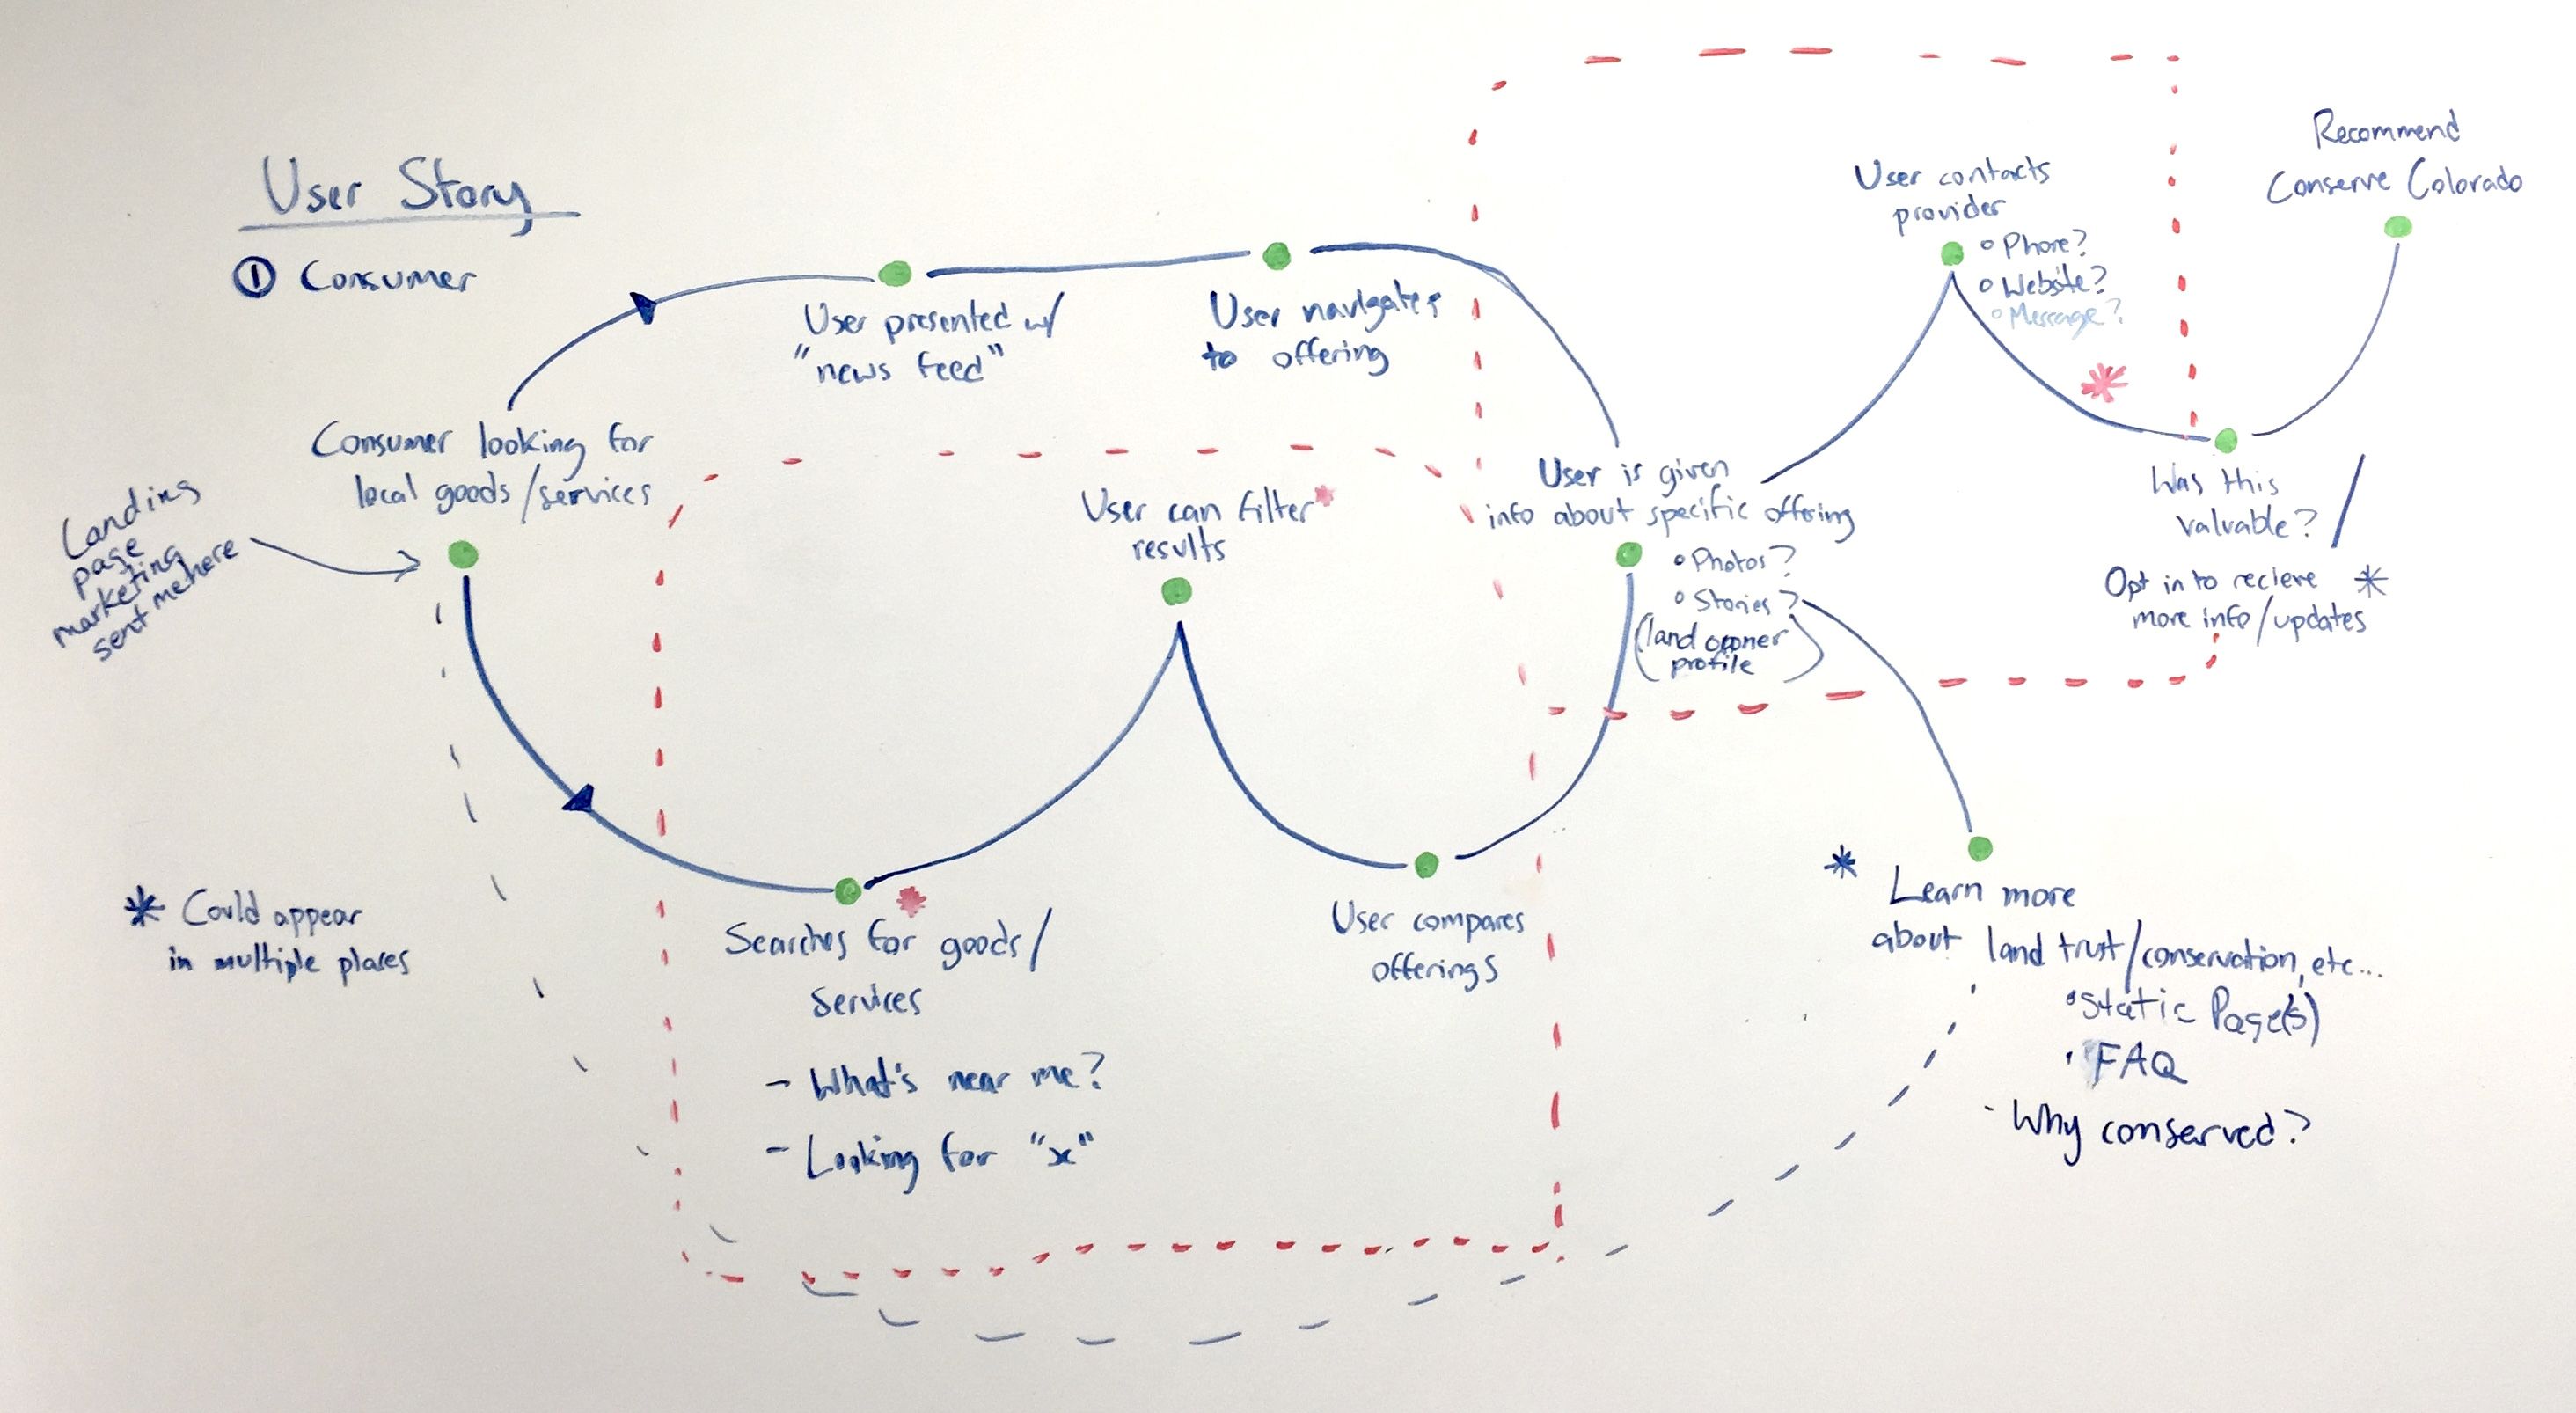 User Story
① Consumer
Landing
page
marketing
sent me here
Consumer looking for
local goods/services
User presented w/
"news feed"
User navigates
to offering
User can filter*
results
User is given
info about specific offering
◦ Photos?
◦ Stories?
(land owner
profile)
User contacts
provider
◦ Phone?
◦ Website?
◦ Message?
*
Recommend
Conserve Colorado
Was this
valuable? /
Opt in to recieve *
more info/updates
* Could appear
in multiple places
*
Searches for goods/
Services
- What's near me?
- Looking for "x"
User compares
offerings
* Learn more
about land trust/conservation, etc...
• Static Page(s)
• FAQ
- Why conserved?